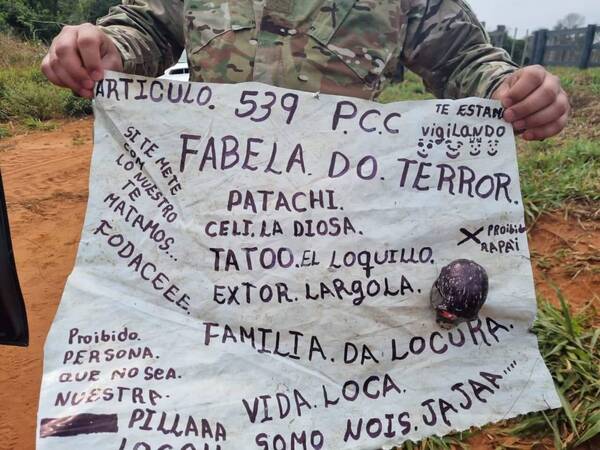 ARTICULO. 539 P.C.C
TE ESTAN
vigilANDO
FABELA. DO. TERROR.
SI TE METE
CON
LO NUESTRO
TE
MATAMOS...
FODACEEE.
PATACHI.
CELI. LA DIOSA.
TATOO. EL LOQUILLO.
EXTOR. LARGOLA.
X PROIBIDO
RAPAI
FAMILIA. DA LOCURA.
VIDA. LOCA.
SOMO NOIS. JAJAA....
Proibido.
PERSONA.
QUE NO SEA.
NUESTRA.
PILLAAA